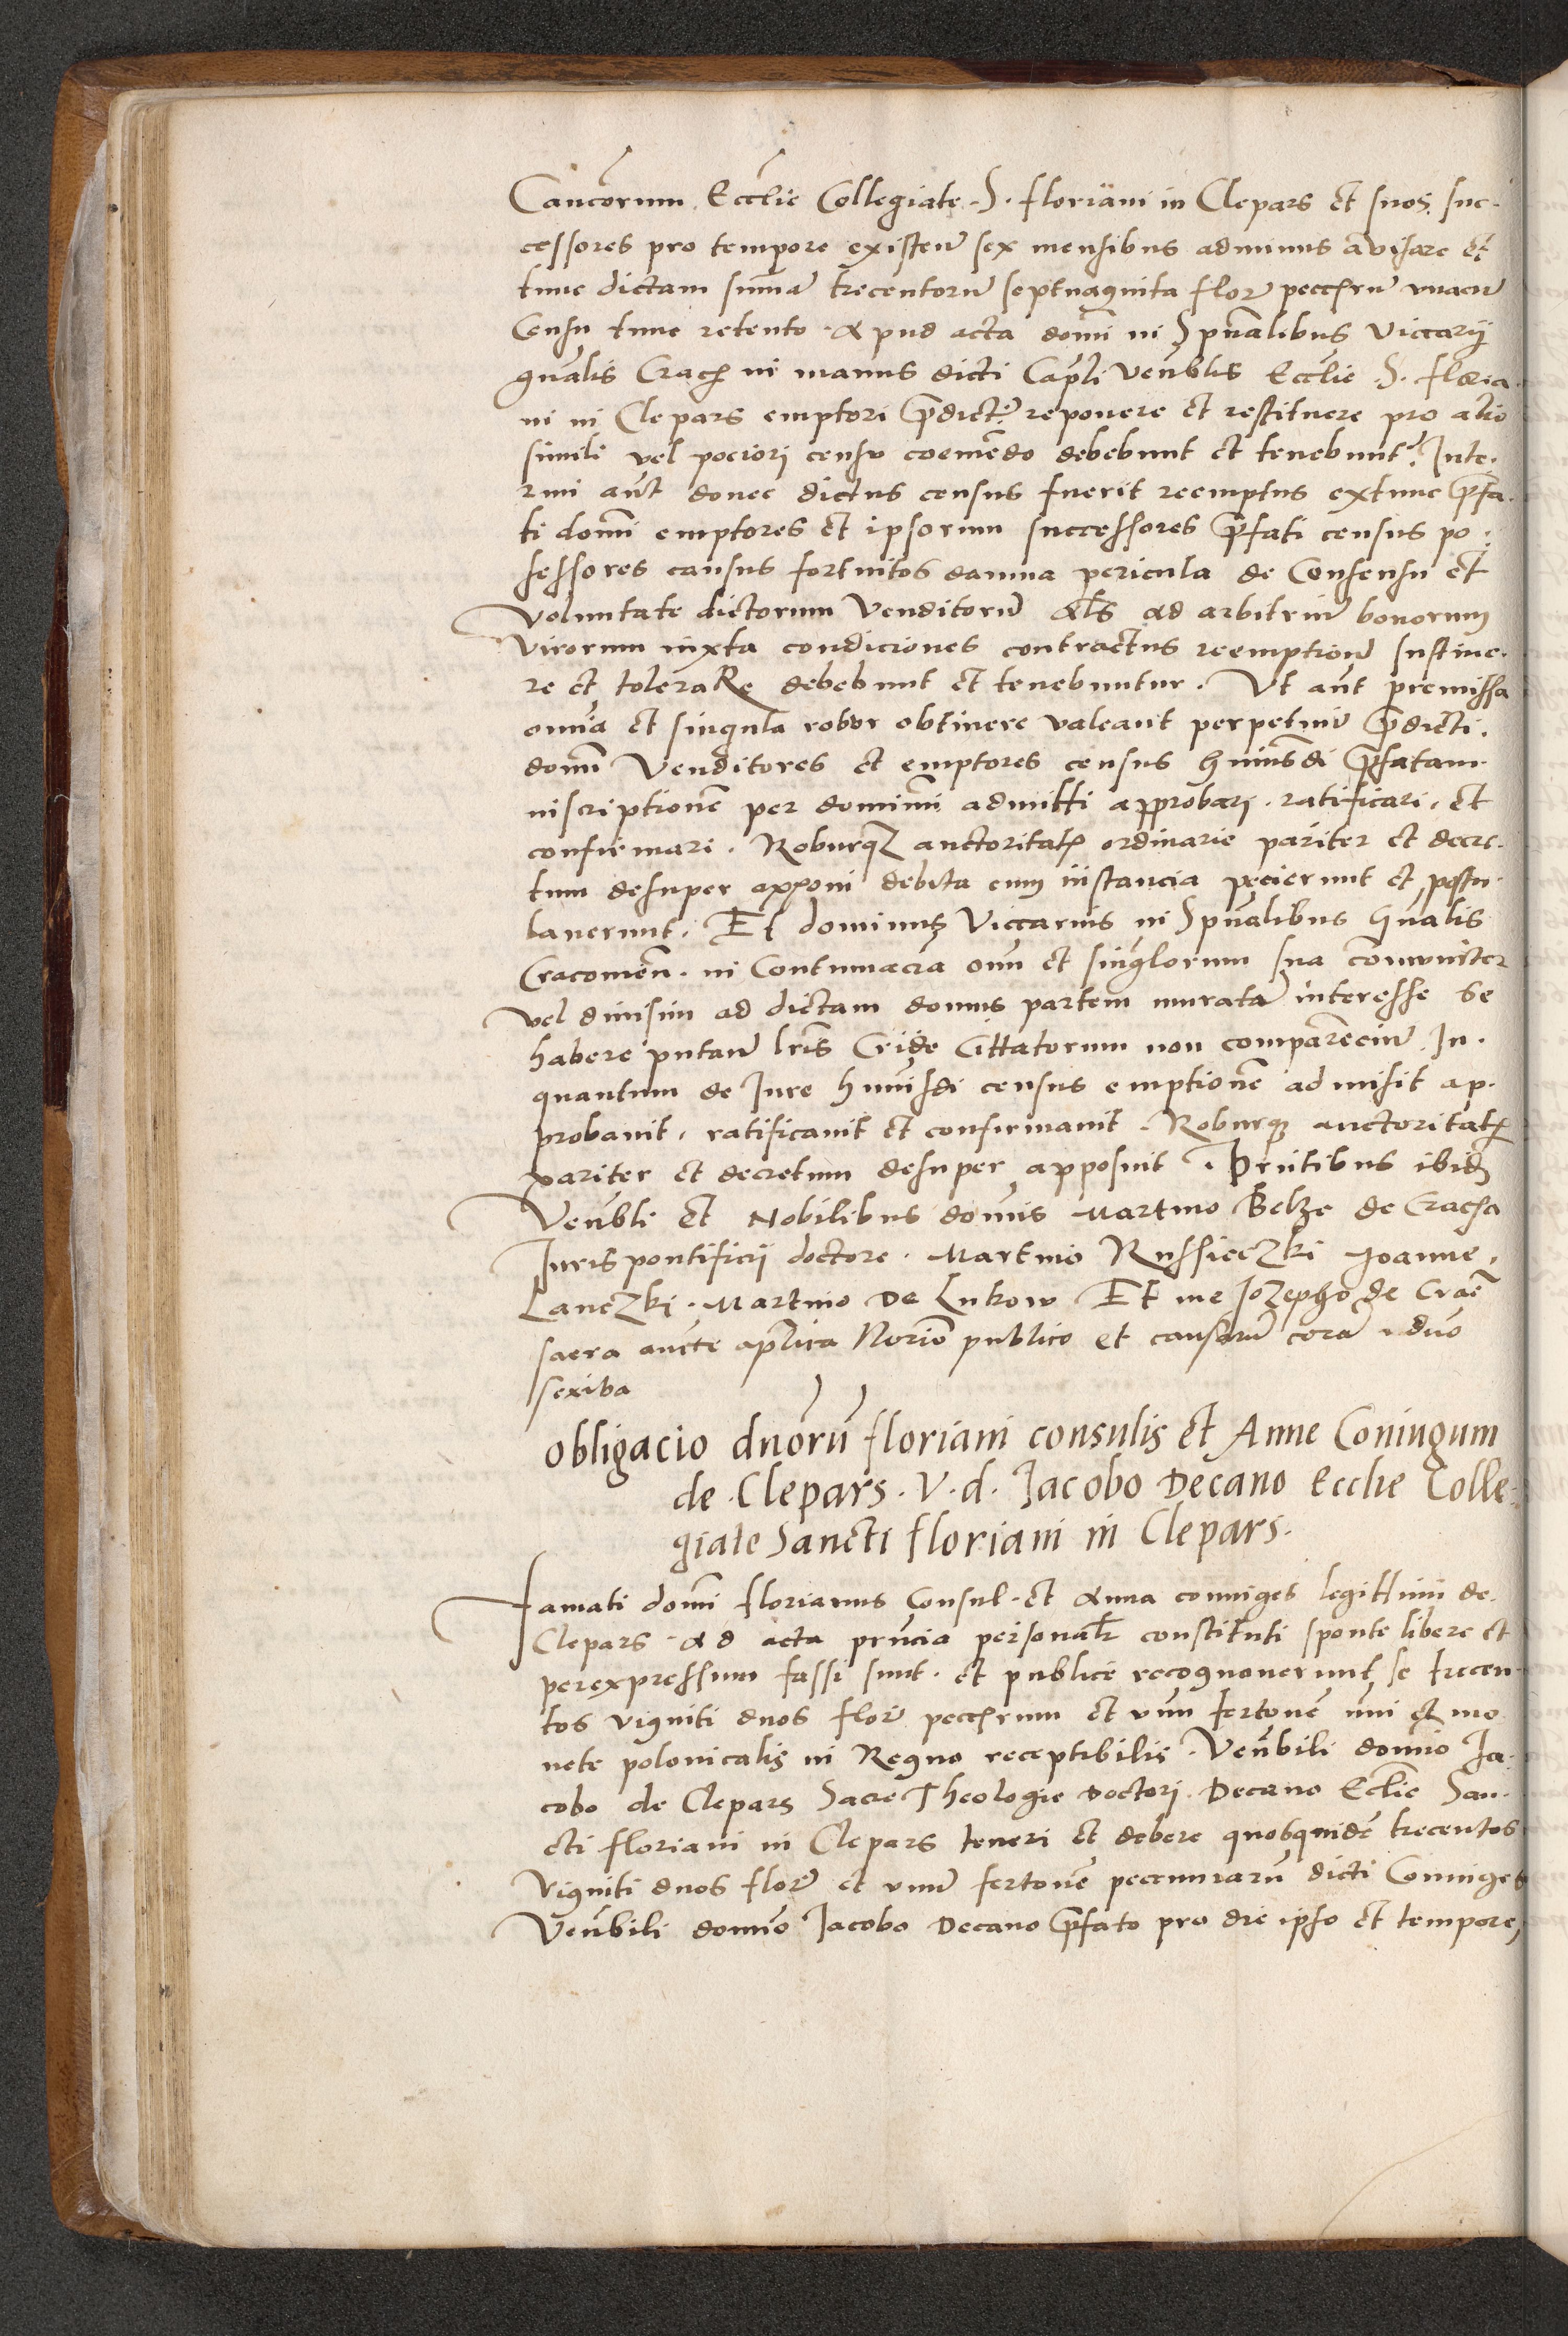 Can̄corum Eccl̄ie Collegiate S. floriani in Clepars et suos suc-
cessores pro tempore existen̄ sex mensibus adminus avisare et
tunc dictam summā trecentorū septuaginta flor̄ peccu͞rū vnacū
Censu tunc retento. Apud acta domī in Spūalibus Viccarij
gn̄alis Crac̄ in manus dicti Capl̄i Ven̄blis Eccl̄ie S. floria-
ni in Clepars emptori p̄dict̄ reponere et restituere pro alio
simili vel pociori censu coemēdo debebunt et tenebunt̄. Inte-
rim aūt donec dictus census fuerit reemptus extunc p̄fa-
ti domī emptores et ipsorum successores p̄fati census po-
sessores causus fortuitos damna pericula de Consensu et
voluntate dictorum Venditorū als̄ ad arbitriū bonorum
virorum iuxta condiciones contractus reemption̄ sustine-
re et toleraRe debebunt et tenebuntur. Vt aūt premissa
omīa et singula robor obtinere valeant perpetuū p̄dicti.
domī Venditores et emptores census huiusdi p̄fatam
inscriptionē per dominū admitti approbari. ratificari. et
confirmari. Roburqz auctoritat̄ ordinarie pariter et decre-
tum desuper apponi debita cum instancia pecierunt et postu-
laverunt. Et dominus Viccarius in Spūalibus Gn̄alis
Cracovien̄. in Contumacia oīm et singlorum sua comuniter
vel divisim ad dictam domus partem muratā interesse se
habere putan̄ lrīs Cride Cittatorum non comparenciū. In-
quantum de Iure huiusdi census emptionē admisit ap-
probavit. ratificavit et confirmavit. Roburq auctoritat̄
pariter et decretum desuper apposuit. Prn̄tibus ibid̄
Ven̄bli et Nobilibus domīs Martino Belze de Cracha
Iuris pontificij doctore. Martino Russieczki Joanne.
Lanczki. Martino De Lukow Et me Jozepho de Crac̄
sacra aucte apl̄ica Norīo publico et causarū corā duo
scriba
Obligacio dnōrū floriani consulis et Anne Coniugum
de Clepars. V. d. Jacobo Decano Eccl̄ie Colle-
giate Sancti floriani in Clepars.
Famati domī florianus Consul. et Anna coniuges legittimi de.
Clepars. ad acta prn̄cia personalr̄ constituti sponte libere et
perexpressum fassi sunt. et publice recognoverunt se trecen-
tos viginti duos flor̄ peccu͞rum et vnū fertonē mo-
nete polonicalis in Regno receptibilis. Ven̄bili domīo Ja-
cobo de Clepars Sacre Theologie Doctori. Decano Eccl̄ie San-
cti floriani in Clepars teneri et debere quosquidē trecentos
Viginti duos flor̄ et vnū fertonē peccuniarū dicti Coniuges
Ven̄bili domīo Jacobo Decano p̄fato pro die ipso et tempore